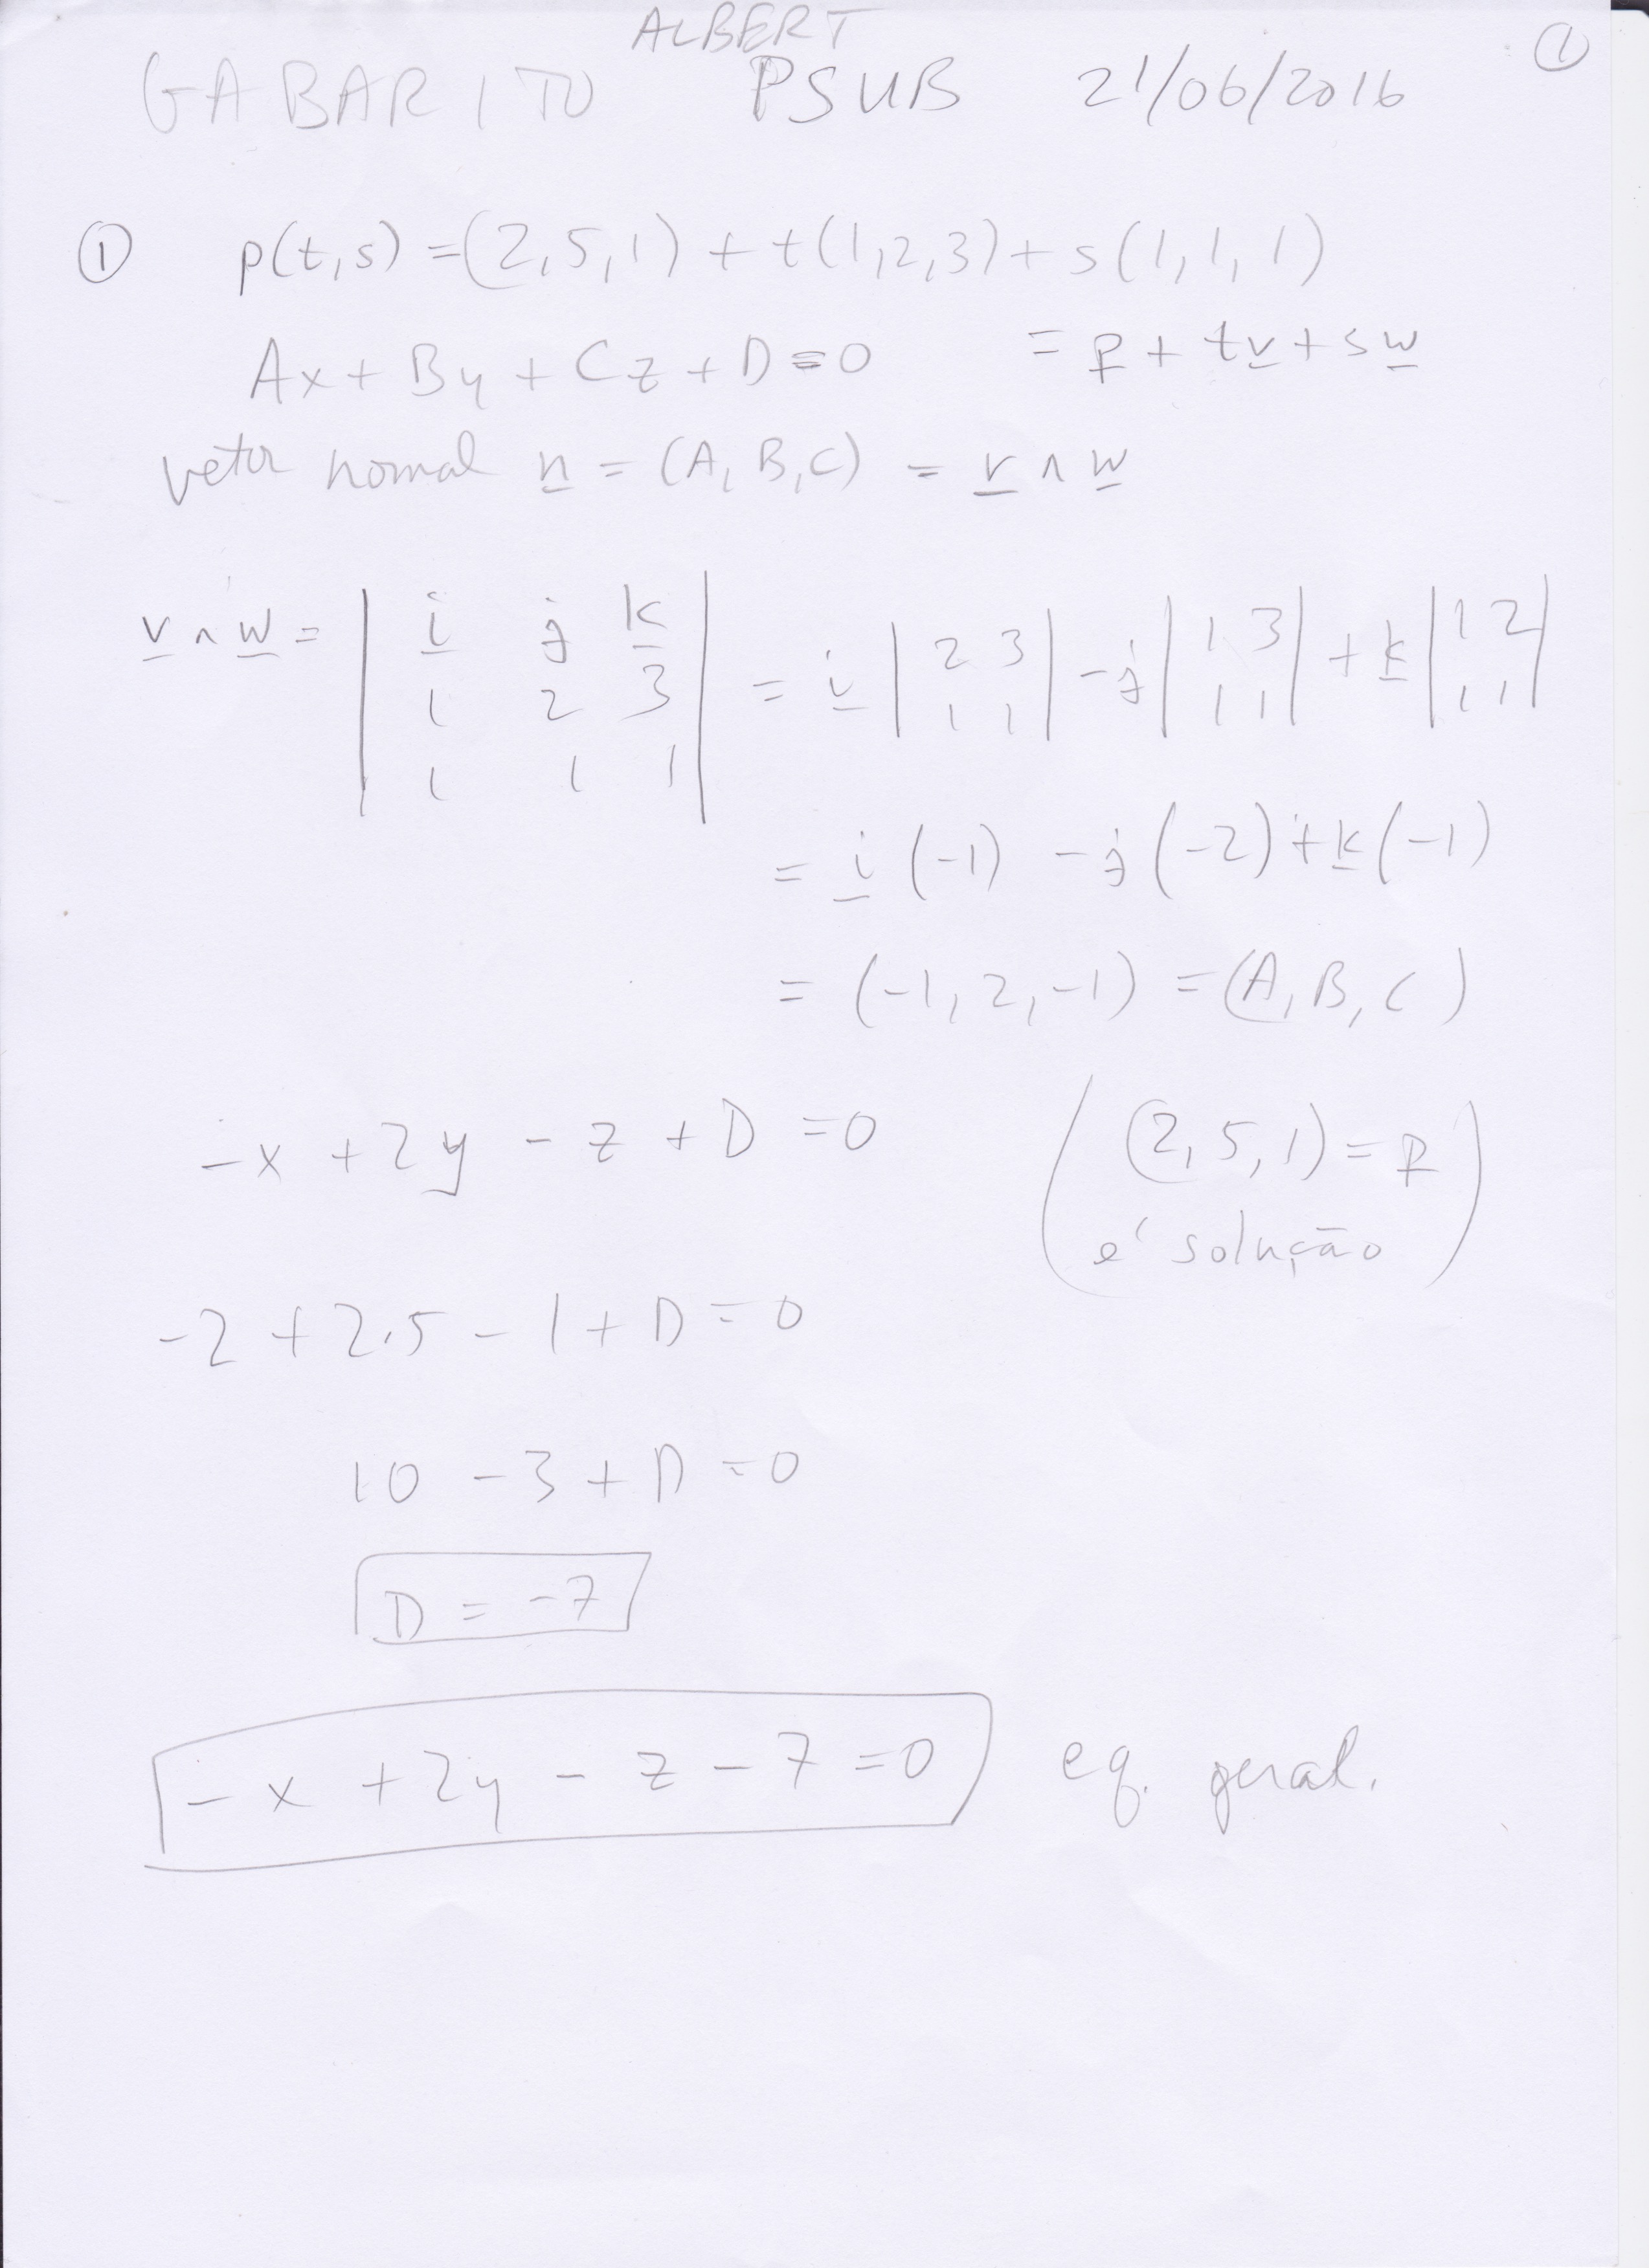 ALBERT
①
GABARITO PSUB 21/06/2016
① p(t,s) = (2,5,1) + t(1,2,3) + s(1,1,1)
Ax + By + Cz + D = 0 = p + tv + sw
vetor normal n = (A,B,C) = v ∧ w
v ∧ w = | i j k | = i | 2 3 | - j | 1 3 | + k | 1 2 |
| 1 2 3 | | 1 1 | | 1 1 | | 1 1 |
| 1 1 1 |
= i (-1) - j (-2) + k (-1)
= (-1, 2, -1) = (A, B, C)
-x + 2y - z + D = 0 ( (2,5,1) = p
é solução )
-2 + 2.5 - 1 + D = 0
10 - 3 + D = 0
D = -7
-x + 2y - z - 7 = 0 eq. geral.